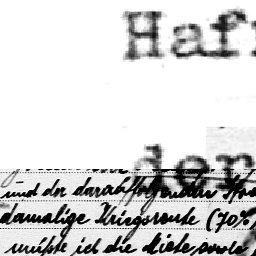 Haf
der
und der darauffolgenden
damalige Kriegsrente (70%
müßte ich die